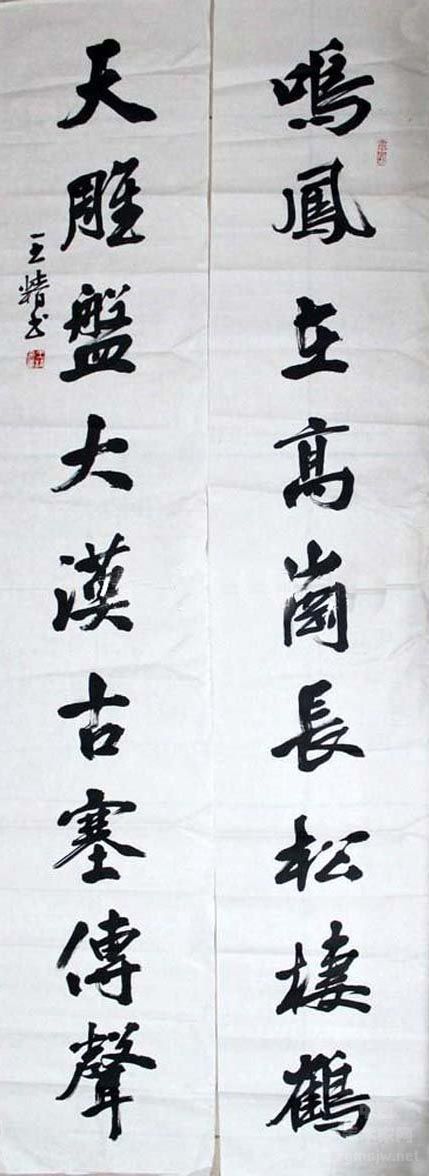 鳴鳳在高崗長松棲鶴
天雕盤大漠古塞傳聲
王精书